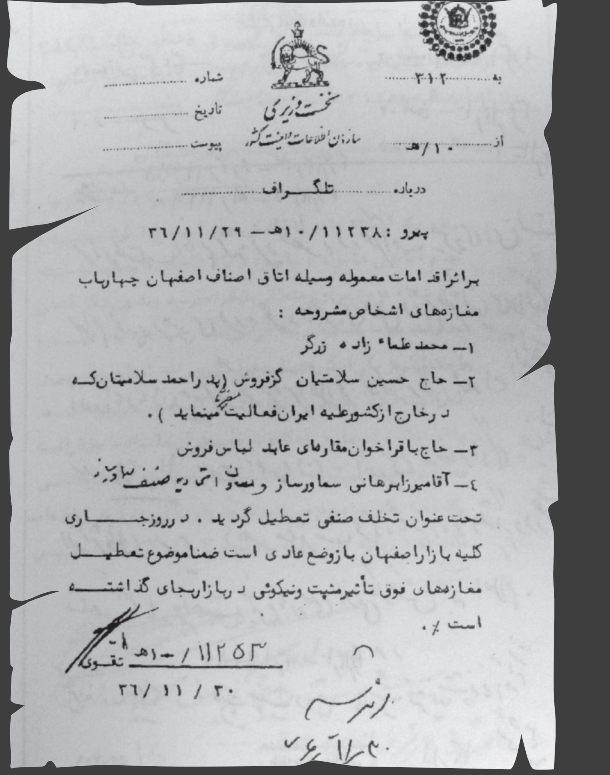 نخست وزیری
سازمان اطلاعات و امنیت کشور
به ۳۱۲
از ۱۰/هـ
شماره
تاریخ
پیوست
درباره تلگراف
پیرو : ۱۰/۱۱۲۳۸هـ - ۳۶/۱۱/۲۹
براثر اقدامات معموله وسیله اتاق اصناف اصفهان چهارباب
مغازه‌های اشخاص مشروحه :
۱ـ محمد علماء زاده زرگر
۲ـ حاج حسین سلامتیان گزفروش (پدر احمد سلامتیان که
درخارج از کشور علیه ایران فعالیت مینماید ) .
۳ـ حاج باقر اخوان مقاره‌ای عابد لباس فروش
٤ـ آقا میرزا برهانی سماور ساز و معاون اتحادیه صنف سماورساز
تحت عنوان تخلف صنفی تعطیل گردید . در روز جـــاری
کلیه بازار اصفهان باز وضع عادی است ضمنا موضوع تعطیـــل
مغازه‌های فوق تأثیر مثبت و نیکوئی در بازار بجای گذاشتـــه
است ./
تقوی ۱۰/۱۱۲۵۳هـ
۳۶/۱۱/۳۰
۳۶/۱۱/۳۰